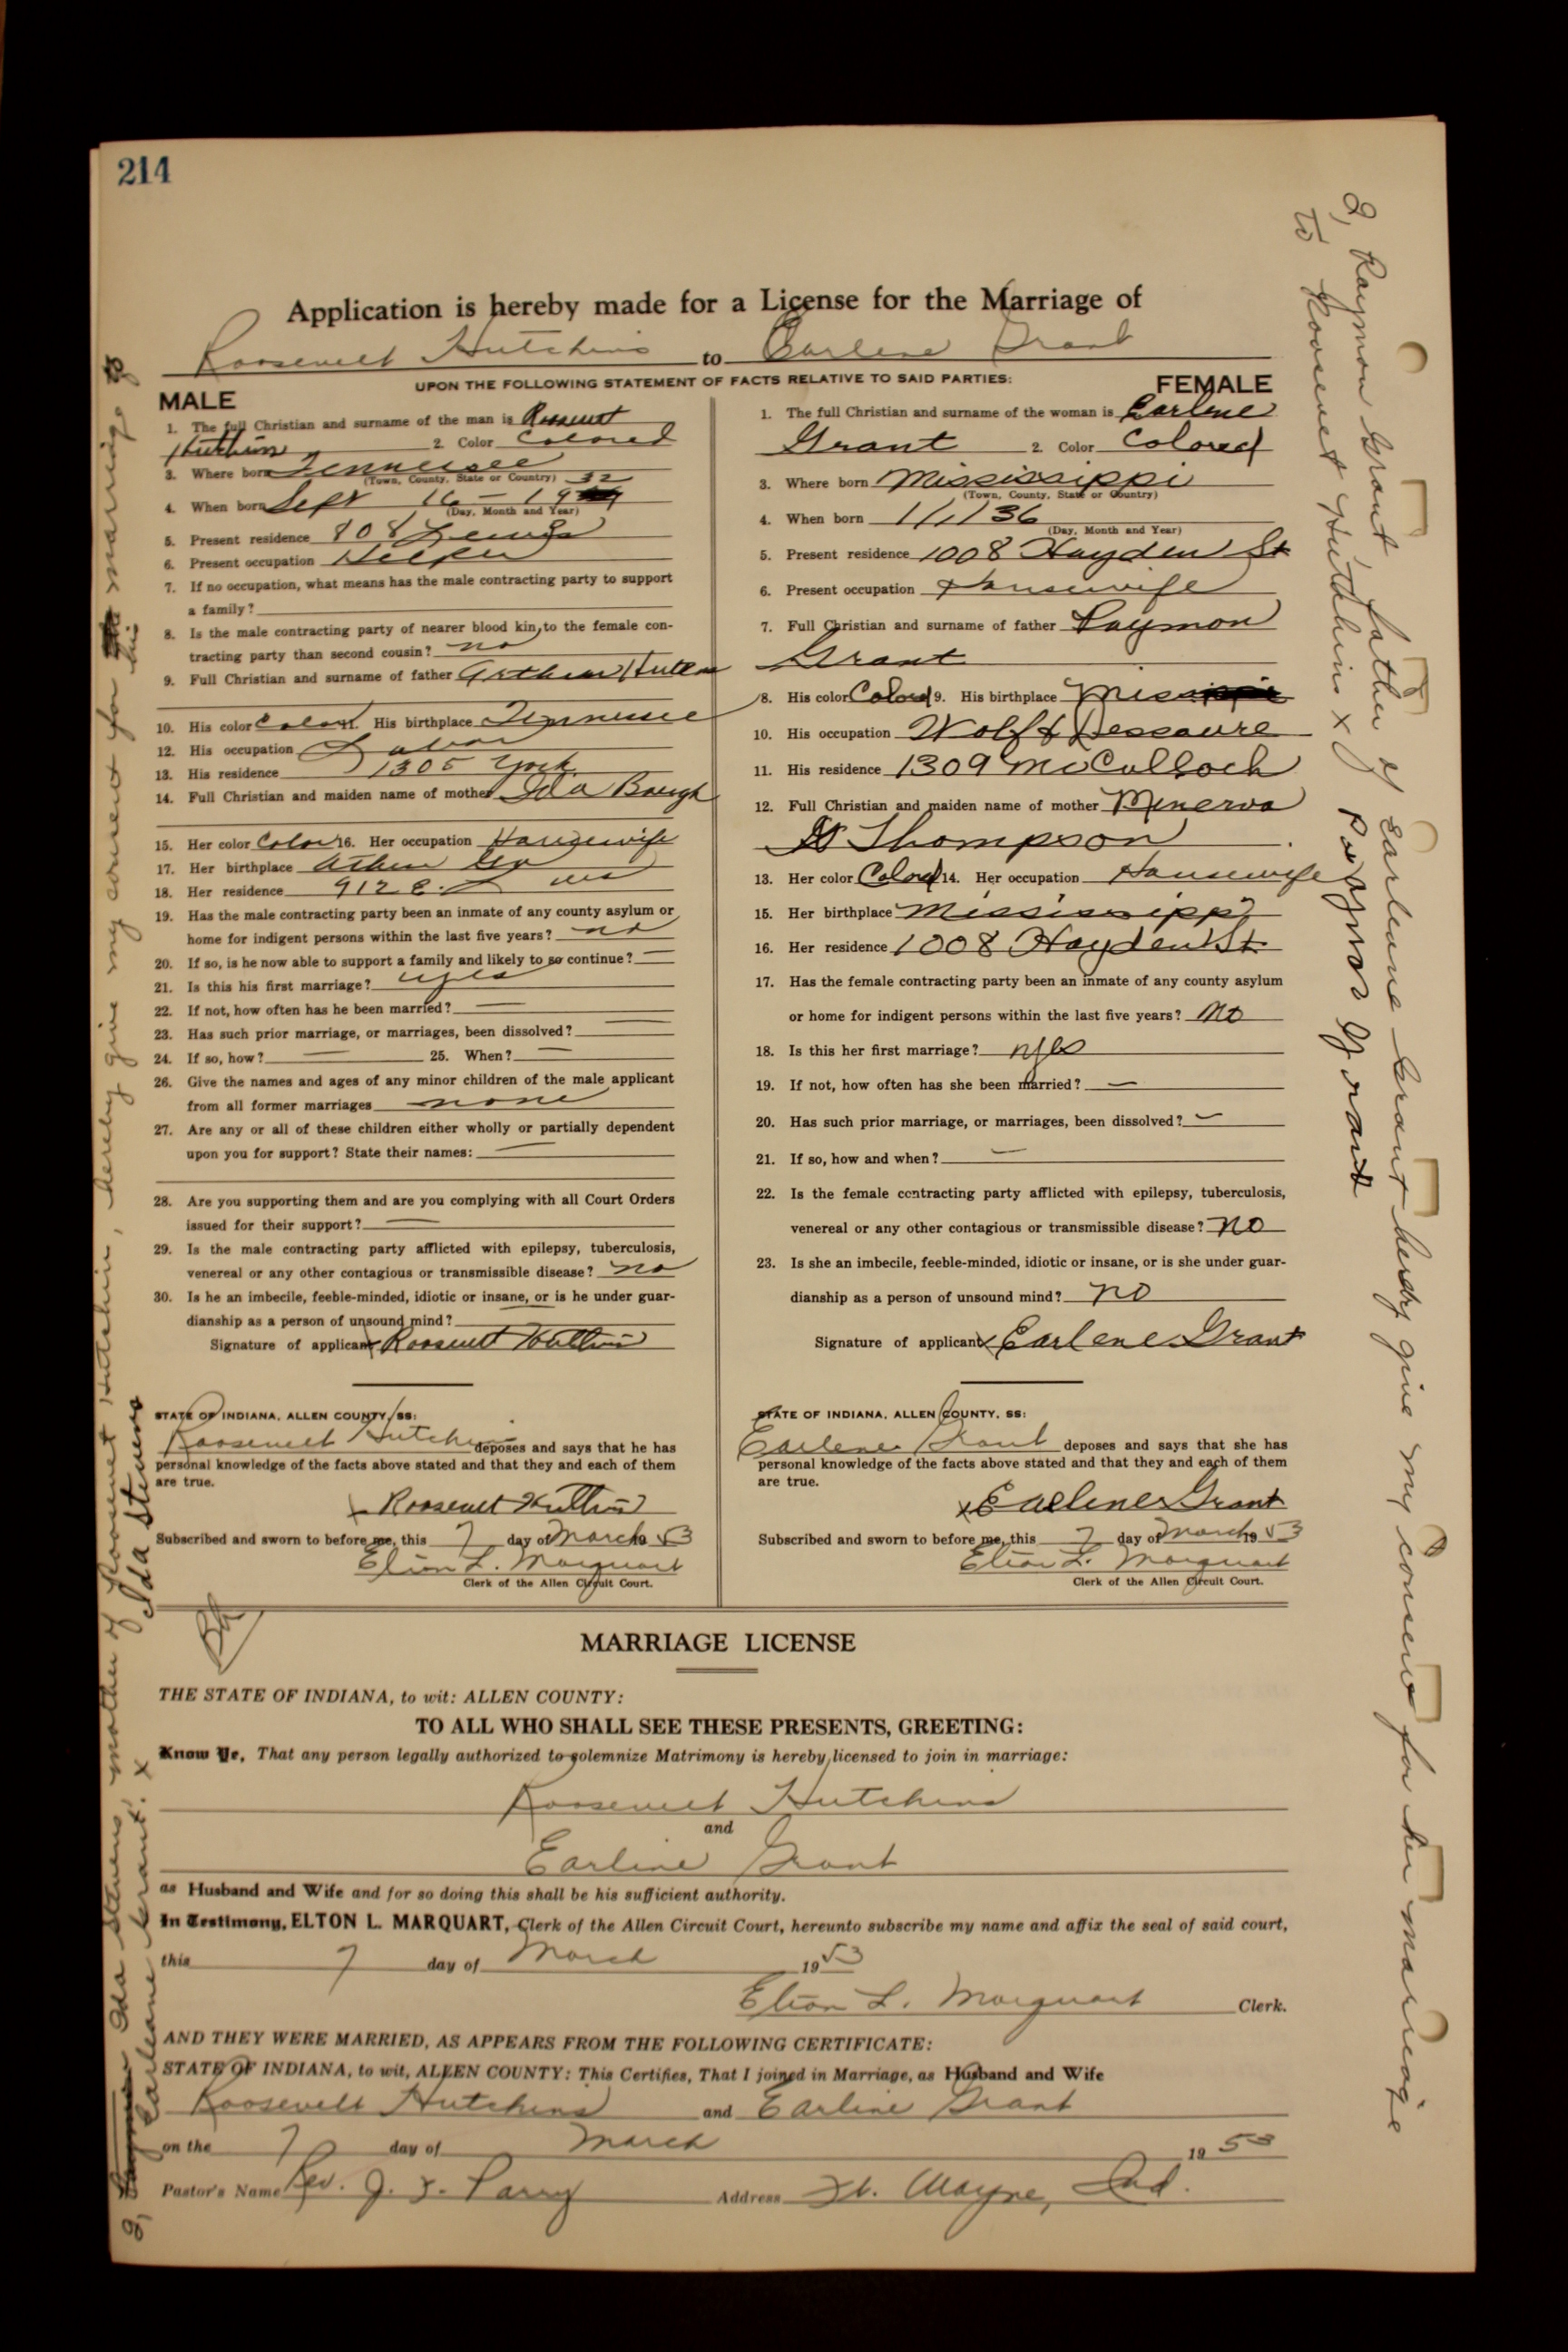 214
Application is hereby made for a License for the Marriage of
Roosevelt Hutchins to Earlene Grant
UPON THE FOLLOWING STATEMENT OF FACTS RELATIVE TO SAID PARTIES:
MALE
1. The full Christian and surname of the man is Roosevelt
Hutchins 2. Color Colored
3. Where born Tennessee
(Town, County, State or Country) 32
4. When born Sept 16 - 19
(Day, Month and Year)
5. Present residence 808 Lewis
6. Present occupation Helper
7. If no occupation, what means has the male contracting party to support
a family?
8. Is the male contracting party of nearer blood kin, to the female con-
tracting party than second cousin? no
9. Full Christian and surname of father
10. His color Color 11. His birthplace Tennessee
12. His occupation Labor
13. His residence 1305 York
14. Full Christian and maiden name of mother Ida Baugh
15. Her color Color 16. Her occupation Housewife
17. Her birthplace
18. Her residence 912 E. Lewis
19. Has the male contracting party been an inmate of any county asylum or
home for indigent persons within the last five years? no
20. If so, is he now able to support a family and likely to so continue? —
21. Is this his first marriage? yes
22. If not, how often has he been married? —
23. Has such prior marriage, or marriages, been dissolved? —
24. If so, how? — 25. When? —
26. Give the names and ages of any minor children of the male applicant
from all former marriages none
27. Are any or all of these children either wholly or partially dependent
upon you for support? State their names: —
28. Are you supporting them and are you complying with all Court Orders
issued for their support? —
29. Is the male contracting party afflicted with epilepsy, tuberculosis,
venereal or any other contagious or transmissible disease? no
30. Is he an imbecile, feeble-minded, idiotic or insane, or is he under guar-
dianship as a person of unsound mind?
Signature of applicant x Roosevelt Hutchins
STATE OF INDIANA, ALLEN COUNTY, SS:
Roosevelt Hutchins deposes and says that he has
personal knowledge of the facts above stated and that they and each of them
are true.
x Roosevelt Hutchins
Subscribed and sworn to before me, this 7 day of March 19 53
Elton L. Marquart
Clerk of the Allen Circuit Court.
FEMALE
1. The full Christian and surname of the woman is Earlene
Grant 2. Color Colored
3. Where born Mississippi
(Town, County, State or Country)
4. When born 1/1/36
(Day, Month and Year)
5. Present residence 1008 Hayden St
6. Present occupation Housewife
7. Full Christian and surname of father Raymon
Grant
8. His color Colored 9. His birthplace
10. His occupation Wolf & Dessaure
11. His residence 1309 McCulloch
12. Full Christian and maiden name of mother Minerva
Thompson
13. Her color Colored 14. Her occupation Housewife
15. Her birthplace Mississippi
16. Her residence 1008 Hayden St.
17. Has the female contracting party been an inmate of any county asylum
or home for indigent persons within the last five years? No
18. Is this her first marriage? yes
19. If not, how often has she been married? —
20. Has such prior marriage, or marriages, been dissolved? —
21. If so, how and when? —
22. Is the female contracting party afflicted with epilepsy, tuberculosis,
venereal or any other contagious or transmissible disease? no
23. Is she an imbecile, feeble-minded, idiotic or insane, or is she under guar-
dianship as a person of unsound mind? no
Signature of applicant x Earlene Grant
STATE OF INDIANA, ALLEN COUNTY, SS:
Earlene Grant deposes and says that she has
personal knowledge of the facts above stated and that they and each of them
are true.
x Earlene Grant
Subscribed and sworn to before me, this 7 day of March 19 53
Elton L. Marquart
Clerk of the Allen Circuit Court.
MARRIAGE LICENSE
THE STATE OF INDIANA, to wit: ALLEN COUNTY:
TO ALL WHO SHALL SEE THESE PRESENTS, GREETING:
Know Ye, That any person legally authorized to solemnize Matrimony is hereby licensed to join in marriage:
Roosevelt Hutchins
and
Earline Grant
as Husband and Wife and for so doing this shall be his sufficient authority.
In Testimony, ELTON L. MARQUART, Clerk of the Allen Circuit Court, hereunto subscribe my name and affix the seal of said court,
this 7 day of March 19 53
Elton L. Marquart Clerk.
AND THEY WERE MARRIED, AS APPEARS FROM THE FOLLOWING CERTIFICATE:
STATE OF INDIANA, to wit, ALLEN COUNTY: This Certifies, That I joined in Marriage, as Husband and Wife
Roosevelt Hutchins and Earline Grant
on the 7 day of March 19 53
Pastor's Name Rev. J. F. Parry Address Ft. Wayne, Ind.
I, Raymon Grant, father of Earleane Grant hereby give my consent for her marriage
to Roosevelt Hutchins x Raymon Grant
I, Ida Stevens, mother of Roosevelt Hutchins, hereby give my consent for his marriage to
Earleane Grant. x Ida Stevens